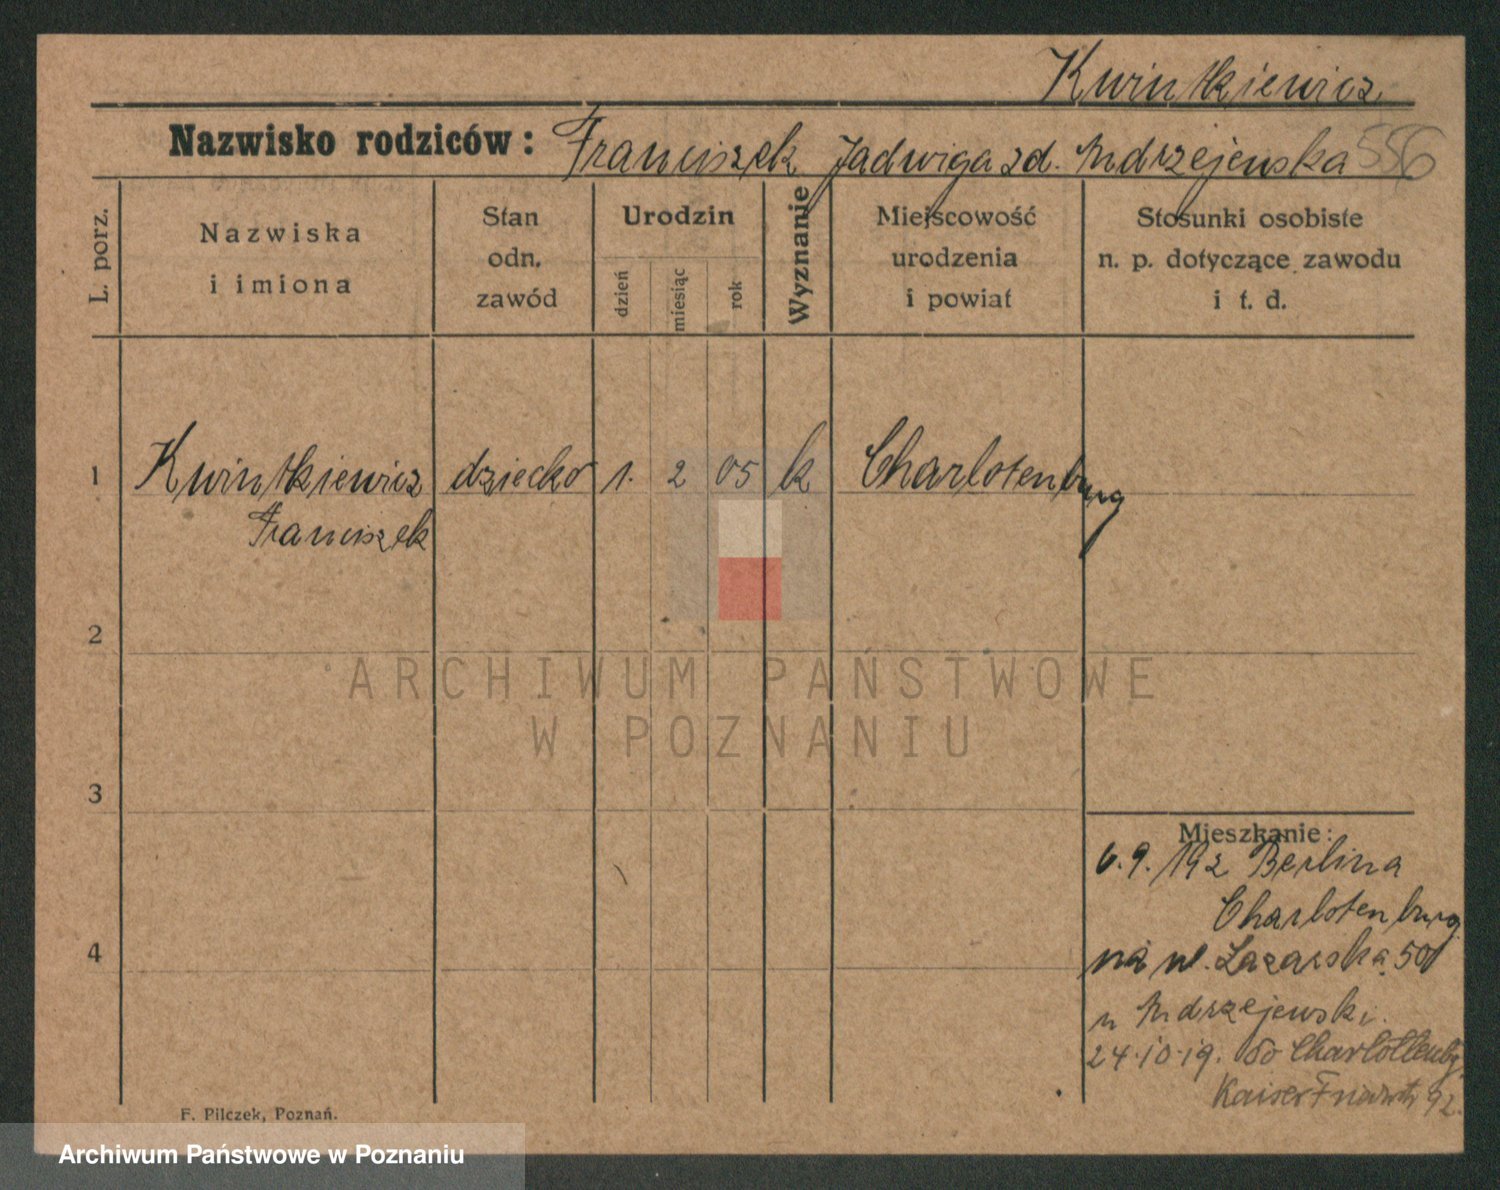 Kwintkiewicz
Nazwisko rodziców: Franciszek Jadwiga zd. Andrzejewska 556
L. porz.
Nazwiska
i imiona
Stan
odn.
zawód
Urodzin
dzień
miesiąc
rok
Wyznanie
Miejscowość
urodzenia
i powiat
Stosunki osobiste
n. p. dotyczące zawodu
i t. d.
1 Kwintkiewicz dziecko 1. 2 05 k Charlotenburg
Franciszek
2
3
4
Mieszkanie:
6.9.192 Berlina
Charlotenburg
na ul. Łazarska 50
u Andrzejewski.
24.10.19. do Charlottenbg.
Kaiser 92.
F. Pilczek, Poznań.
ARCHIWUM PAŃSTWOWE
W POZNANIU
Archiwum Państwowe w Poznaniu